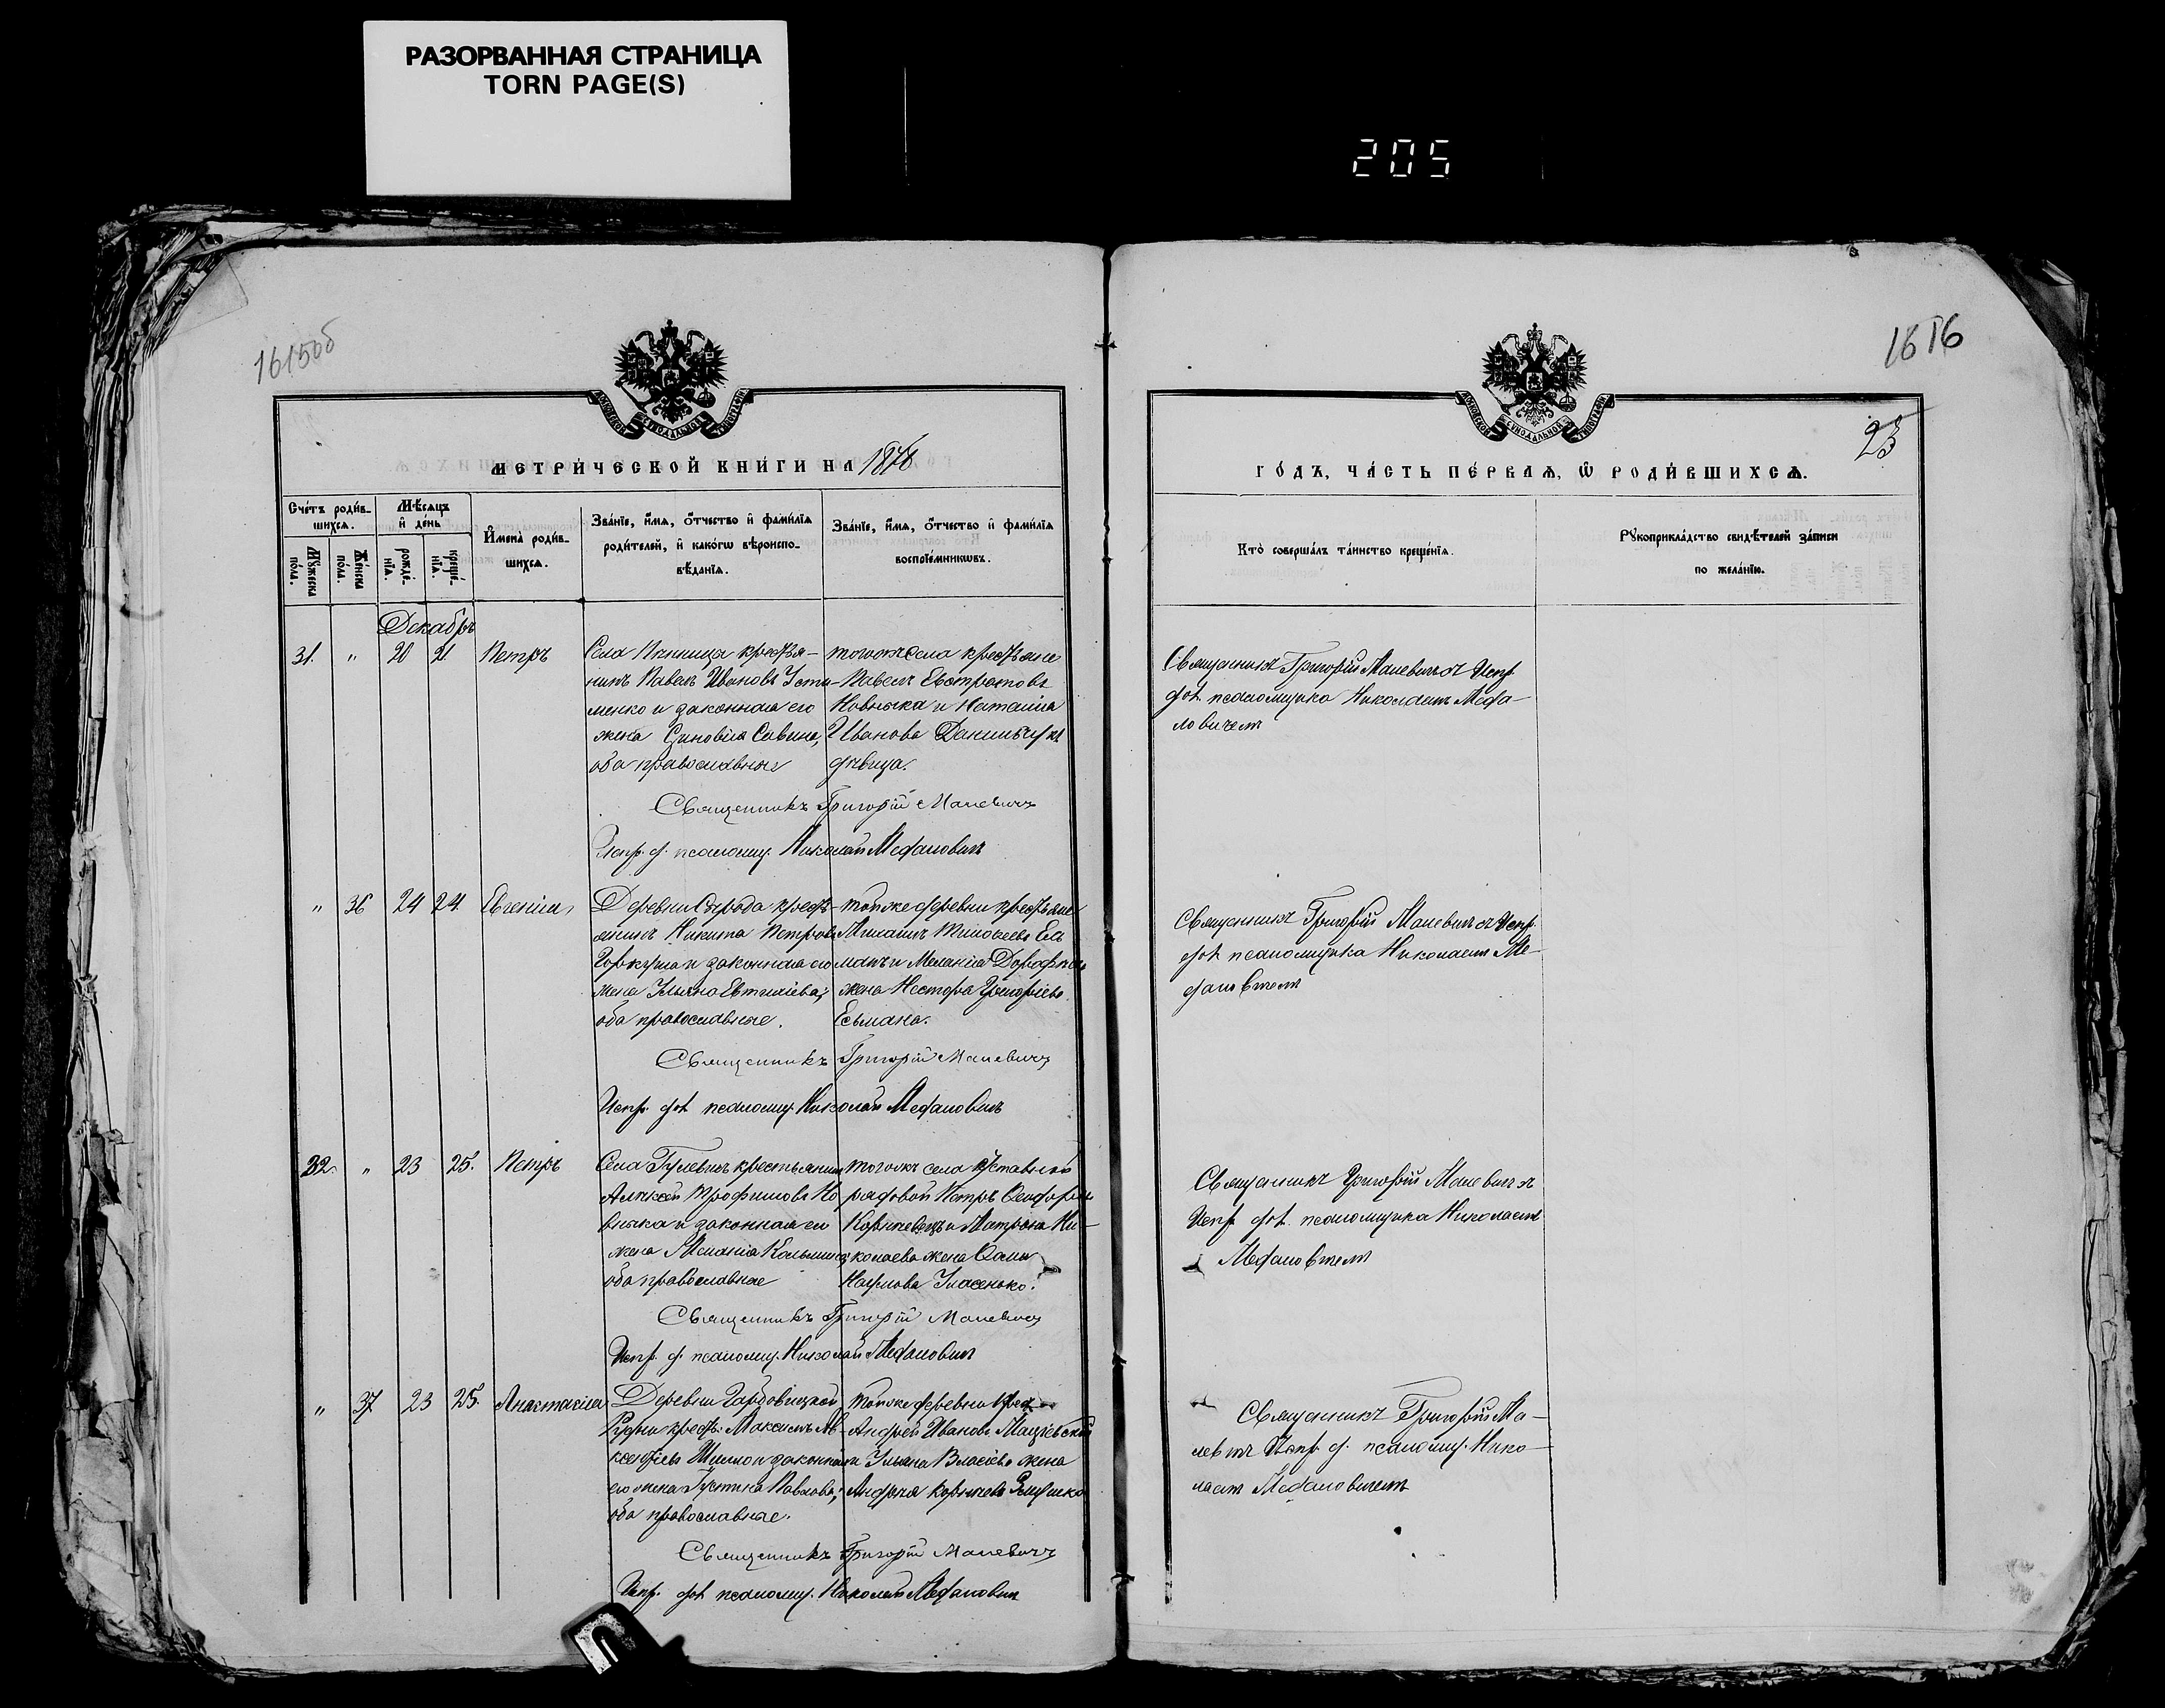 РАЗОРВАННАЯ СТРАНИЦА
TORN PAGE(S)
205
1615об
МЕТРИ́ЧЕСКОЙ КНИ́ГИ НА 1878
Сче́тъ роди́в-
шихсѧ.
Мѣ́сѧцъ
и҆ де́нь
И҆мена̀ роди́в-
шихсѧ.
Зва́нїе, и҆́мѧ, ѻ҆́тчество и҆ фами́лїѧ
роди́телей, и҆ како́гѡ вѣроиспо-
вѣ́данїѧ.
Зва́нїе, и҆́мѧ, ѻ҆́тчество и҆ фами́лїѧ
воспрїе́мникѡвъ.
Мꙋ́жеска
по́ла.
Же́нска
по́ла.
рожде́-
нїѧ.
креще́-
нїѧ.
Декабрь
31. " 20 21. Петръ
Села крестья-
нинъ Павелъ Ивановъ Усти-
менко и законная его
жена Зиновія Савина,
оба православные
тогожъ села крестьяне
Павелъ Евстратовъ
Новныка и Наталія
Иванова
дѣвица.
Священникъ Григорій Малевичъ
Испр. д. псаломщ. Николай Мефаловичъ
" 36 24 24. Евгенія
Деревни крестья-
янинъ Никита Петровъ
и законная его
жена Ульяна Евтихіева,
оба православные.
той же деревни крестьяне
Михаилъ Тимофеевъ Есь
манъ и Меланія Дорофѣева
жена Нестора Григоріева
Есьмана.
Священникъ Григорій Малевичъ
Испр. дол. псаломщ. Николай Мефаловичъ
32. " 23 25. Петръ
Села Гулевичъ крестьянинъ
Алексѣй Трофимовъ Но
вныка и законная его
жена Меланія
оба православные
тогожъ села отставной
рядовой Петръ Ѳеодоровъ
Корыневецъ и Матрона Ни-
колаева жена
Наумова Уласенько.
Священникъ Григорій Малевичъ
Испр. д. псаломщ. Николай Мефаловичъ
" 37 23 25. Анастасія
Деревни
Рудни крест. Максимъ Ав-
ксентіевъ Шилло и законная
его жена Іустина Павлова,
оба православные.
той же деревни крест.
Андрей Ивановъ Мацѣевскій
и Ульяна Власіева жена
Андрея
Священникъ Григорій Малевичъ
Испр. дол. псаломщ. Николай Мефаловичъ
1616
23
ГО́ДЪ, ЧА́СТЬ ПЕ́РВАѦ, Ѽ РОДИ́ВШИХСѦ.
Кто̀ соверша́лъ та́инство креще́нїѧ.
Рꙋкоприкла́дство свидѣ́телей за́писи
по жела́нїю.
Священникъ Григорій Малевичъ съ Испр.
дол. псаломщика Николаемъ Мефа-
ловичемъ
Священникъ Григорій Малевичъ съ Испр.
дол. псаломщика Николаемъ Ме-
фаловичемъ
Священникъ Григорій Малевичъ съ
Испр. дол. псаломщика Николаемъ
Мефаловичемъ
Священникъ Григорій Ма-
левичъ Испр. д. псаломщ. Нико-
лаемъ Мефаловичемъ